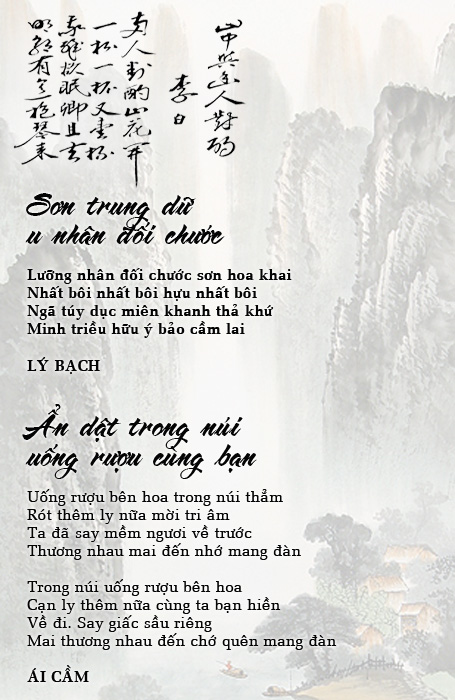 山中與幽人對酌
李白
两人對酌山花開
一杯一杯又壹杯
我醉欲眠卿且去
明朝有意抱琴來
Sơn trung dữ
u nhân đối chước
Lưỡng nhân đối chước sơn hoa khai
Nhất bôi nhất bôi hựu nhất bôi
Ngã túy dục miên khanh thả khứ
Minh triều hữu ý bảo cầm lai
LÝ BẠCH
Ẩn dật trong núi
uống rượu cùng bạn
Uống rượu bên hoa trong núi thẳm
Rót thêm ly nữa mời tri âm
Ta đã say mềm ngươi về trước
Thương nhau mai đến nhớ mang đàn
Trong núi uống rượu bên hoa
Cạn ly thêm nữa cùng ta bạn hiền
Về đi. Say giấc sầu riêng
Mai thương nhau đến chớ quên mang đàn
ÁI CẦM